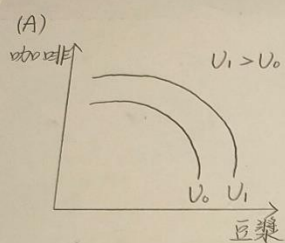 (A)
咖啡
U₁ > U₀
U₀ U₁
豆漿